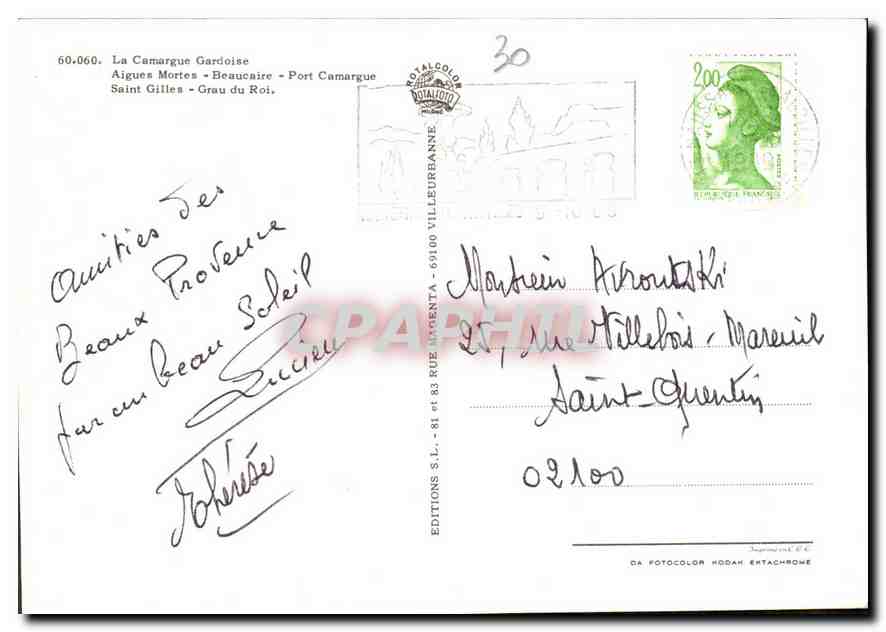 60.060. La Camargue Gardoise
Aigues Mortes - Beaucaire - Port Camargue
Saint Gilles - Grau du Roi.
30
ROTALCOLOR
ROTALFOTO
MILANO
2,00
REPUBLIQUE FRANÇAISE
EDITIONS S.L. - 81 et 83 RUE MAGENTA - 69100 VILLEURBANNE
Amitiés des
Beaux Provence
par un beau Soleil
Lucien
Thérèse
CPAPHIL
Monsieur Avroutski
25, rue Villebois-Mareuil
Saint-Quentin
02100
DA FOTOCOLOR KODAK EKTACHROME